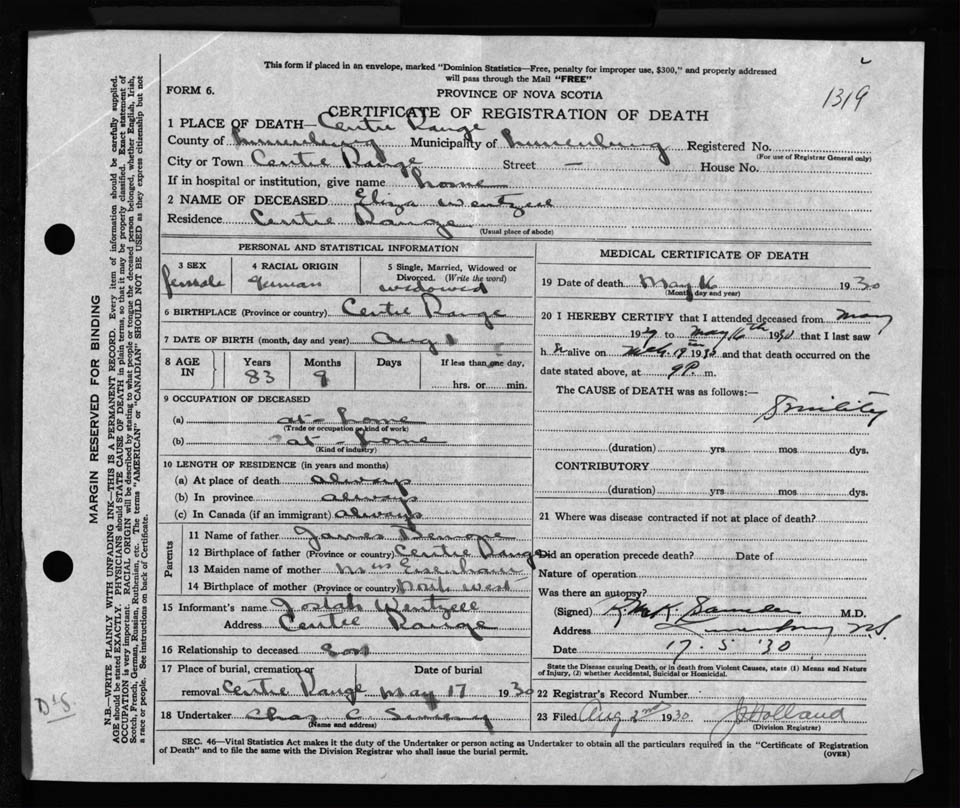 This form if placed in an envelope, marked "Dominion Statistics—Free, penalty for improper use, $300," and properly addressed
will pass through the Mail "FREE"
FORM 6.
PROVINCE OF NOVA SCOTIA
1319
CERTIFICATE OF REGISTRATION OF DEATH
1 PLACE OF DEATH—Centre Range
County of Lunenburg Municipality of Lunenburg Registered No.
(For use of Registrar General only)
City or Town Centre Range Street — House No.
If in hospital or institution, give name home
2 NAME OF DECEASED Eliza Wentzell
Residence Centre Range
(Usual place of abode)
PERSONAL AND STATISTICAL INFORMATION
3 SEX 4 RACIAL ORIGIN 5 Single, Married, Widowed or
Divorced. (Write the word)
female German widowed
6 BIRTHPLACE (Province or country) Centre Range
7 DATE OF BIRTH (month, day and year) Aug
8 AGE IN Years Months Days If less than one day,
83 9 hrs. or min.
9 OCCUPATION OF DECEASED
(a) at-home
(Trade or occupation or kind of work)
(b) at-home
(Kind of industry)
10 LENGTH OF RESIDENCE (in years and months)
(a) At place of death always
(b) In province always
(c) In Canada (if an immigrant) always
Parents
11 Name of father James
12 Birthplace of father (Province or country) Centre Range
13 Maiden name of mother Eisenhaur
14 Birthplace of mother (Province or country) North west
15 Informant's name Josiah Wentzell
Address Centre Range
16 Relationship to deceased Son
17 Place of burial, cremation or Date of burial
removal Centre Range May 17 1930
18 Undertaker Chas C
(Name and address)
MEDICAL CERTIFICATE OF DEATH
19 Date of death May 16 1930
(Month, day and year)
20 I HEREBY CERTIFY that I attended deceased from May
1929 to May 16th 1930 that I last saw
her alive on 1930 and that death occurred on the
date stated above, at 9 P. m.
The CAUSE of DEATH was as follows:—
Senility
(duration) yrs mos dys.
CONTRIBUTORY
(duration) yrs mos dys.
21 Where was disease contracted if not at place of death?
Did an operation precede death? Date of
Nature of operation
Was there an autopsy?
(Signed) M.D.
Address Lunenburg N.S.
Date 17. 5 '30
State the Disease causing Death, or in death from Violent Causes, state (1) Means and Nature
of Injury, (2) whether Accidental, Suicidal or Homicidal.
22 Registrar's Record Number
23 Filed Aug 2nd 1930 J Holland
(Division Registrar)
SEC. 46—Vital Statistics Act makes it the duty of the Undertaker or person acting as Undertaker to obtain all the particulars required in the "Certificate of Registration
of Death" and to file the same with the Division Registrar who shall issue the burial permit.
(OVER)
MARGIN RESERVED FOR BINDING
N.B.—WRITE PLAINLY WITH UNFADING INK—THIS IS A PERMANENT RECORD. Every item of information should be carefully supplied.
AGE should be stated EXACTLY. PHYSICIANS should STATE CAUSE OF DEATH in plain terms, so that it may be properly classified. Exact statement of
OCCUPATION is very important. RACIAL ORIGIN will be described by stating to what people or tongue the deceased person belonged, whether English, Irish,
Scotch, French, German, Russian, Ruthenian, etc. The terms "AMERICAN" or "CANADIAN" SHOULD NOT BE USED as they express citizenship but not
a race or people. See instructions on back of Certificate.